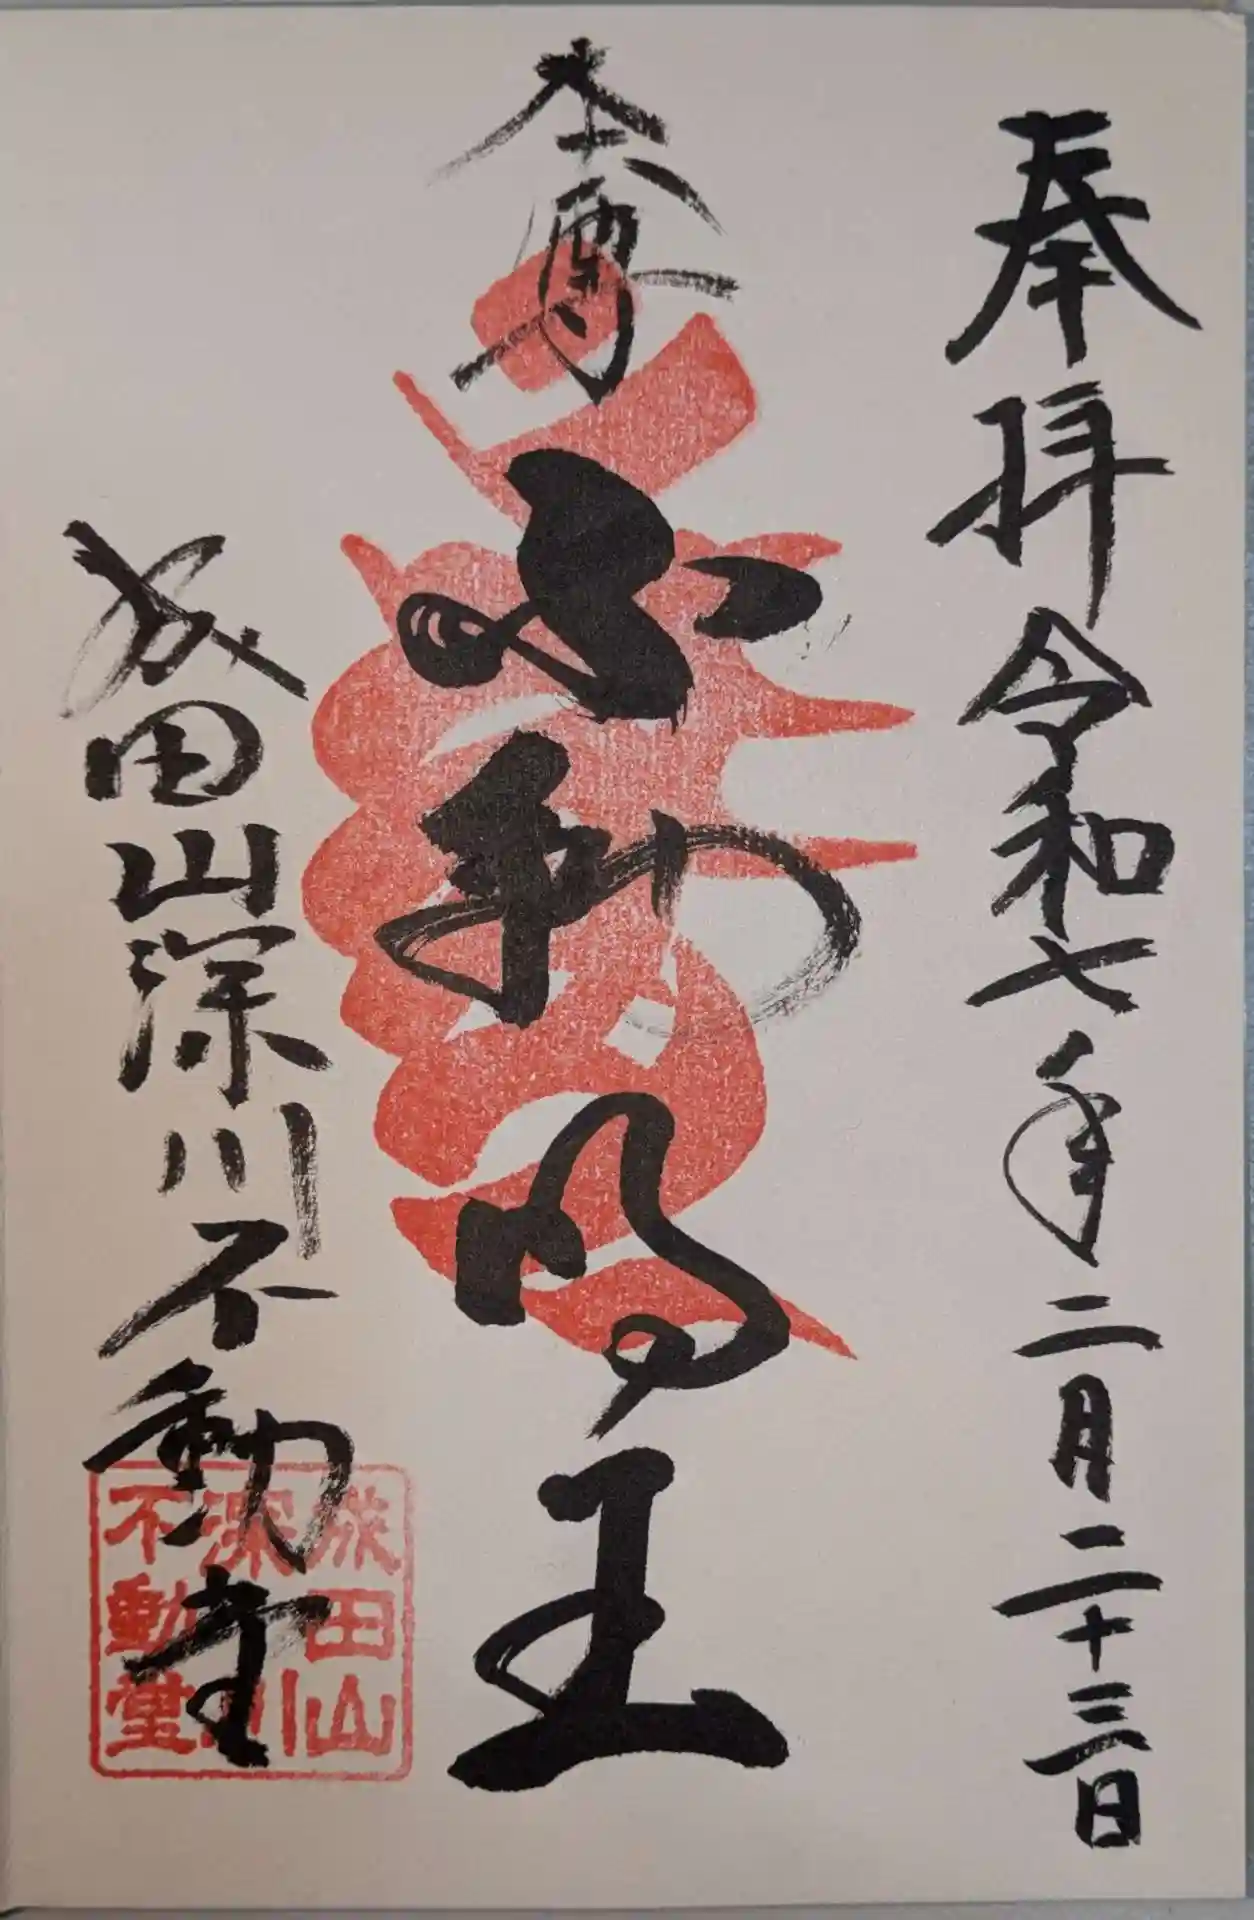 奉拝 令和七年二月二十三日
本尊 不動明王
成田山深川不動堂
成田山
深川
不動堂